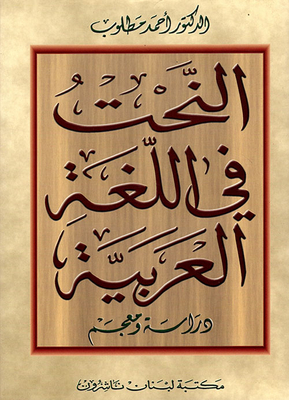 الدكتور أحمد مطلوب
النَّحْتُ
في اللُّغَةِ
العَرَبِيَّةِ
دراسة ومعجم
مكتبة لبنان ناشرون